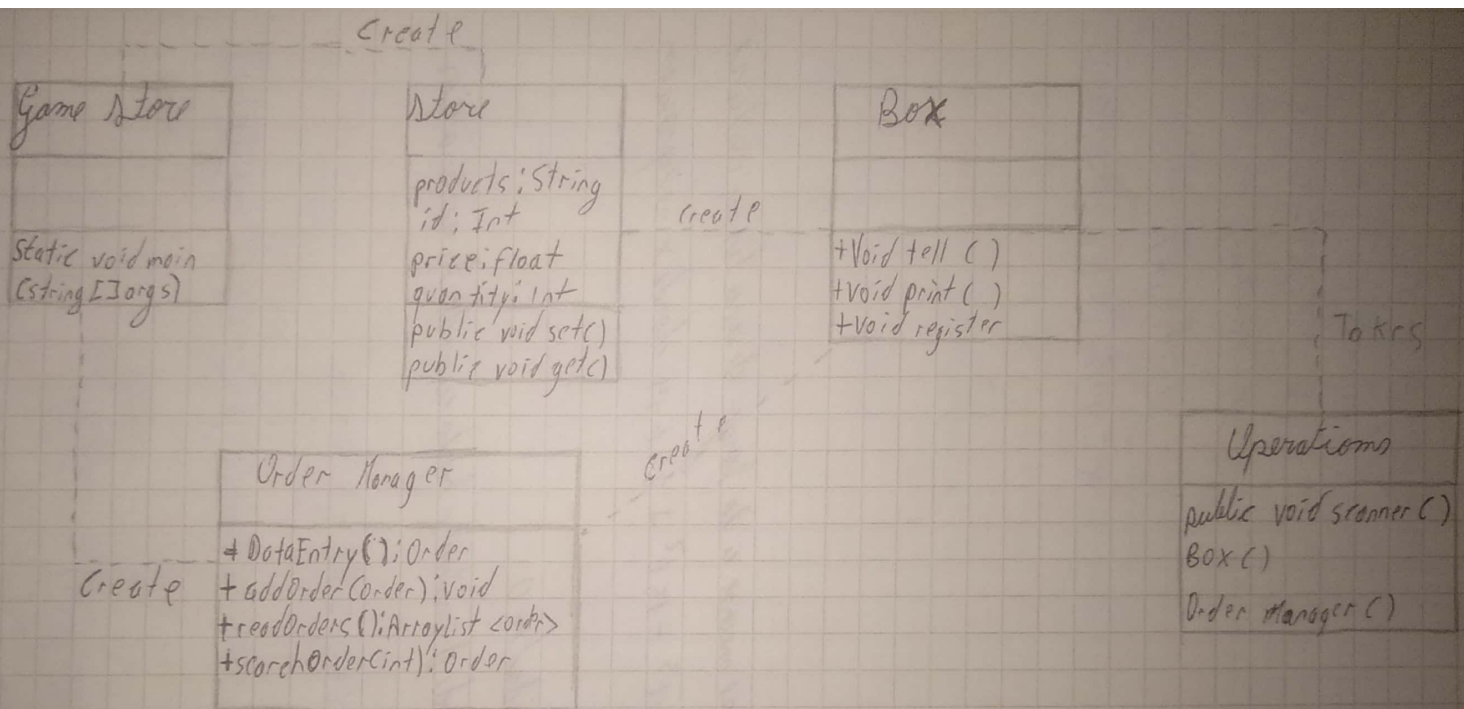 Create
Game Store
Static void main
(string[]args)
Store
products: String
id: Int
price: float
quantity: Int
public void set()
public void get()
create
Box
+Void tell ()
+void print()
+Void register
Takes
create
Order Manager
+ DataEntry(): Order
+ addOrder(order): void
+readOrders(): Arraylist <order>
+searchOrder(int): Order
Create
Operations
public void scanner()
Box()
Order Manager()